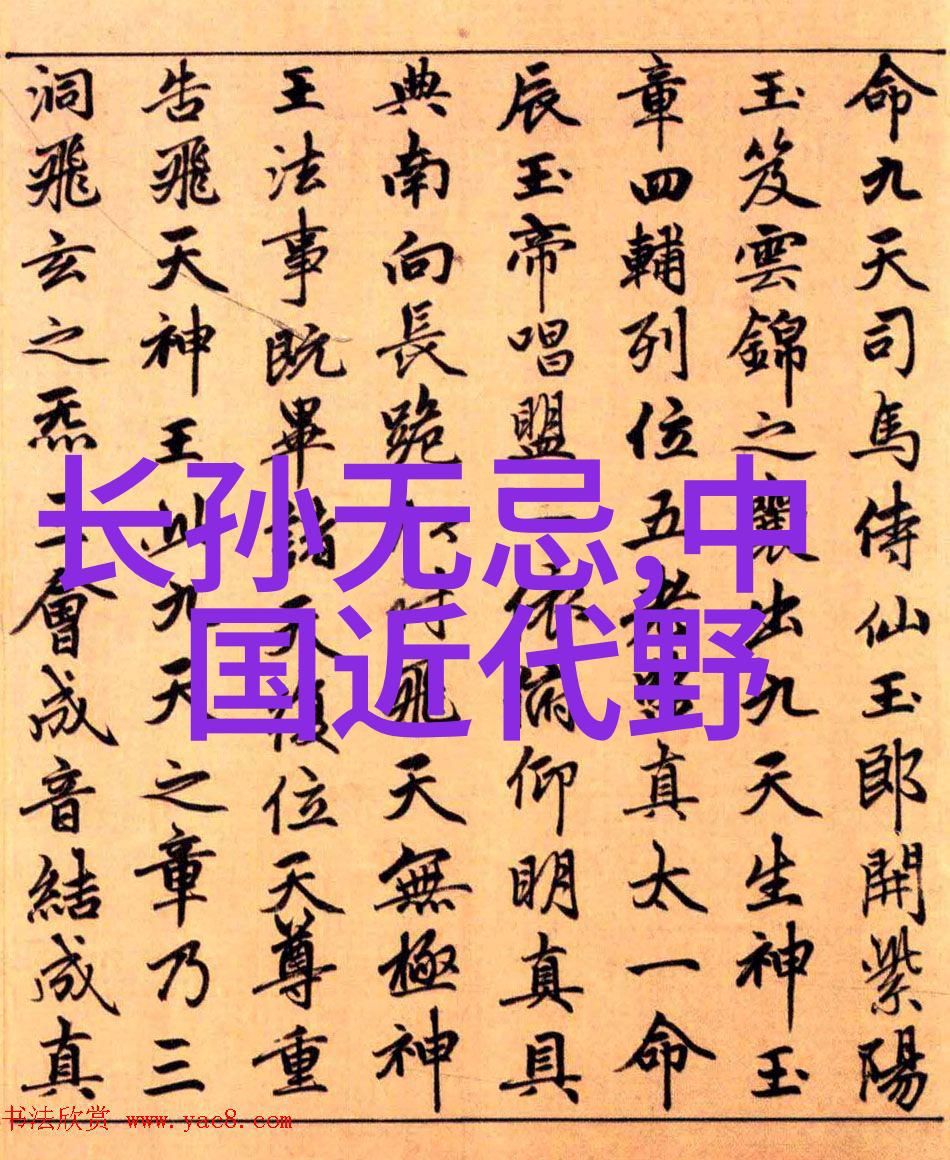 命九天司馬侍仙玉郎開紫陽
玉笈雲錦之囊出九天生神玉
章四輔列位五老上真太一命
辰玉帝唱盟一依俯仰明真具
典南向長跪 飛天無極神
王法事既畢諸天復位天尊重
告飛天神王此九天之章乃三
洞飛玄之炁三會成音結成真
长孙无忌,中
国近代野
书法欣赏 www.yac8.com